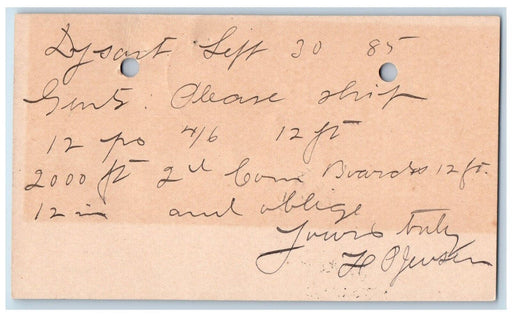 Dysart Sept 30 85
Gents. Please ship
12 pc 4/6 12 ft
2000 ft 2d Com Boards 12 ft.
12 in and oblige
Yours truly
H P Jensen